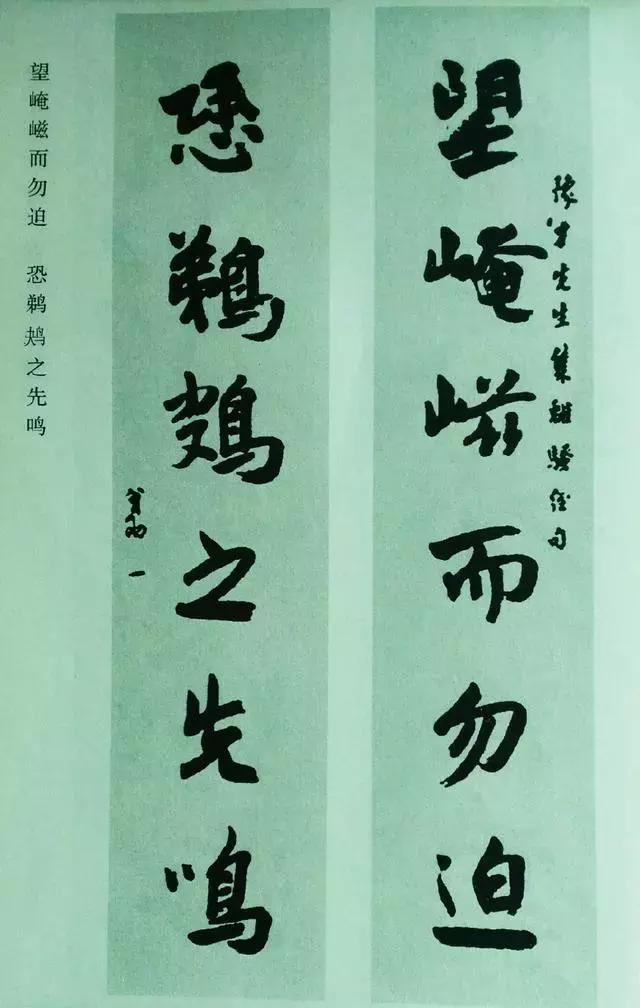 豫才先生集離騷經句
望崦嵫而勿迫
恐鵜鴂之先鳴
望崦嵫而勿迫 恐鹈鴂之先鸣